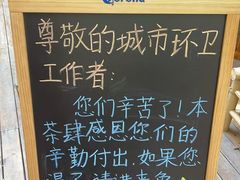 Corona
尊敬的城市环卫
工作者:
您们辛苦了!本
茶肆感恩您们的
辛勤付出.如果您
渴了请进来免